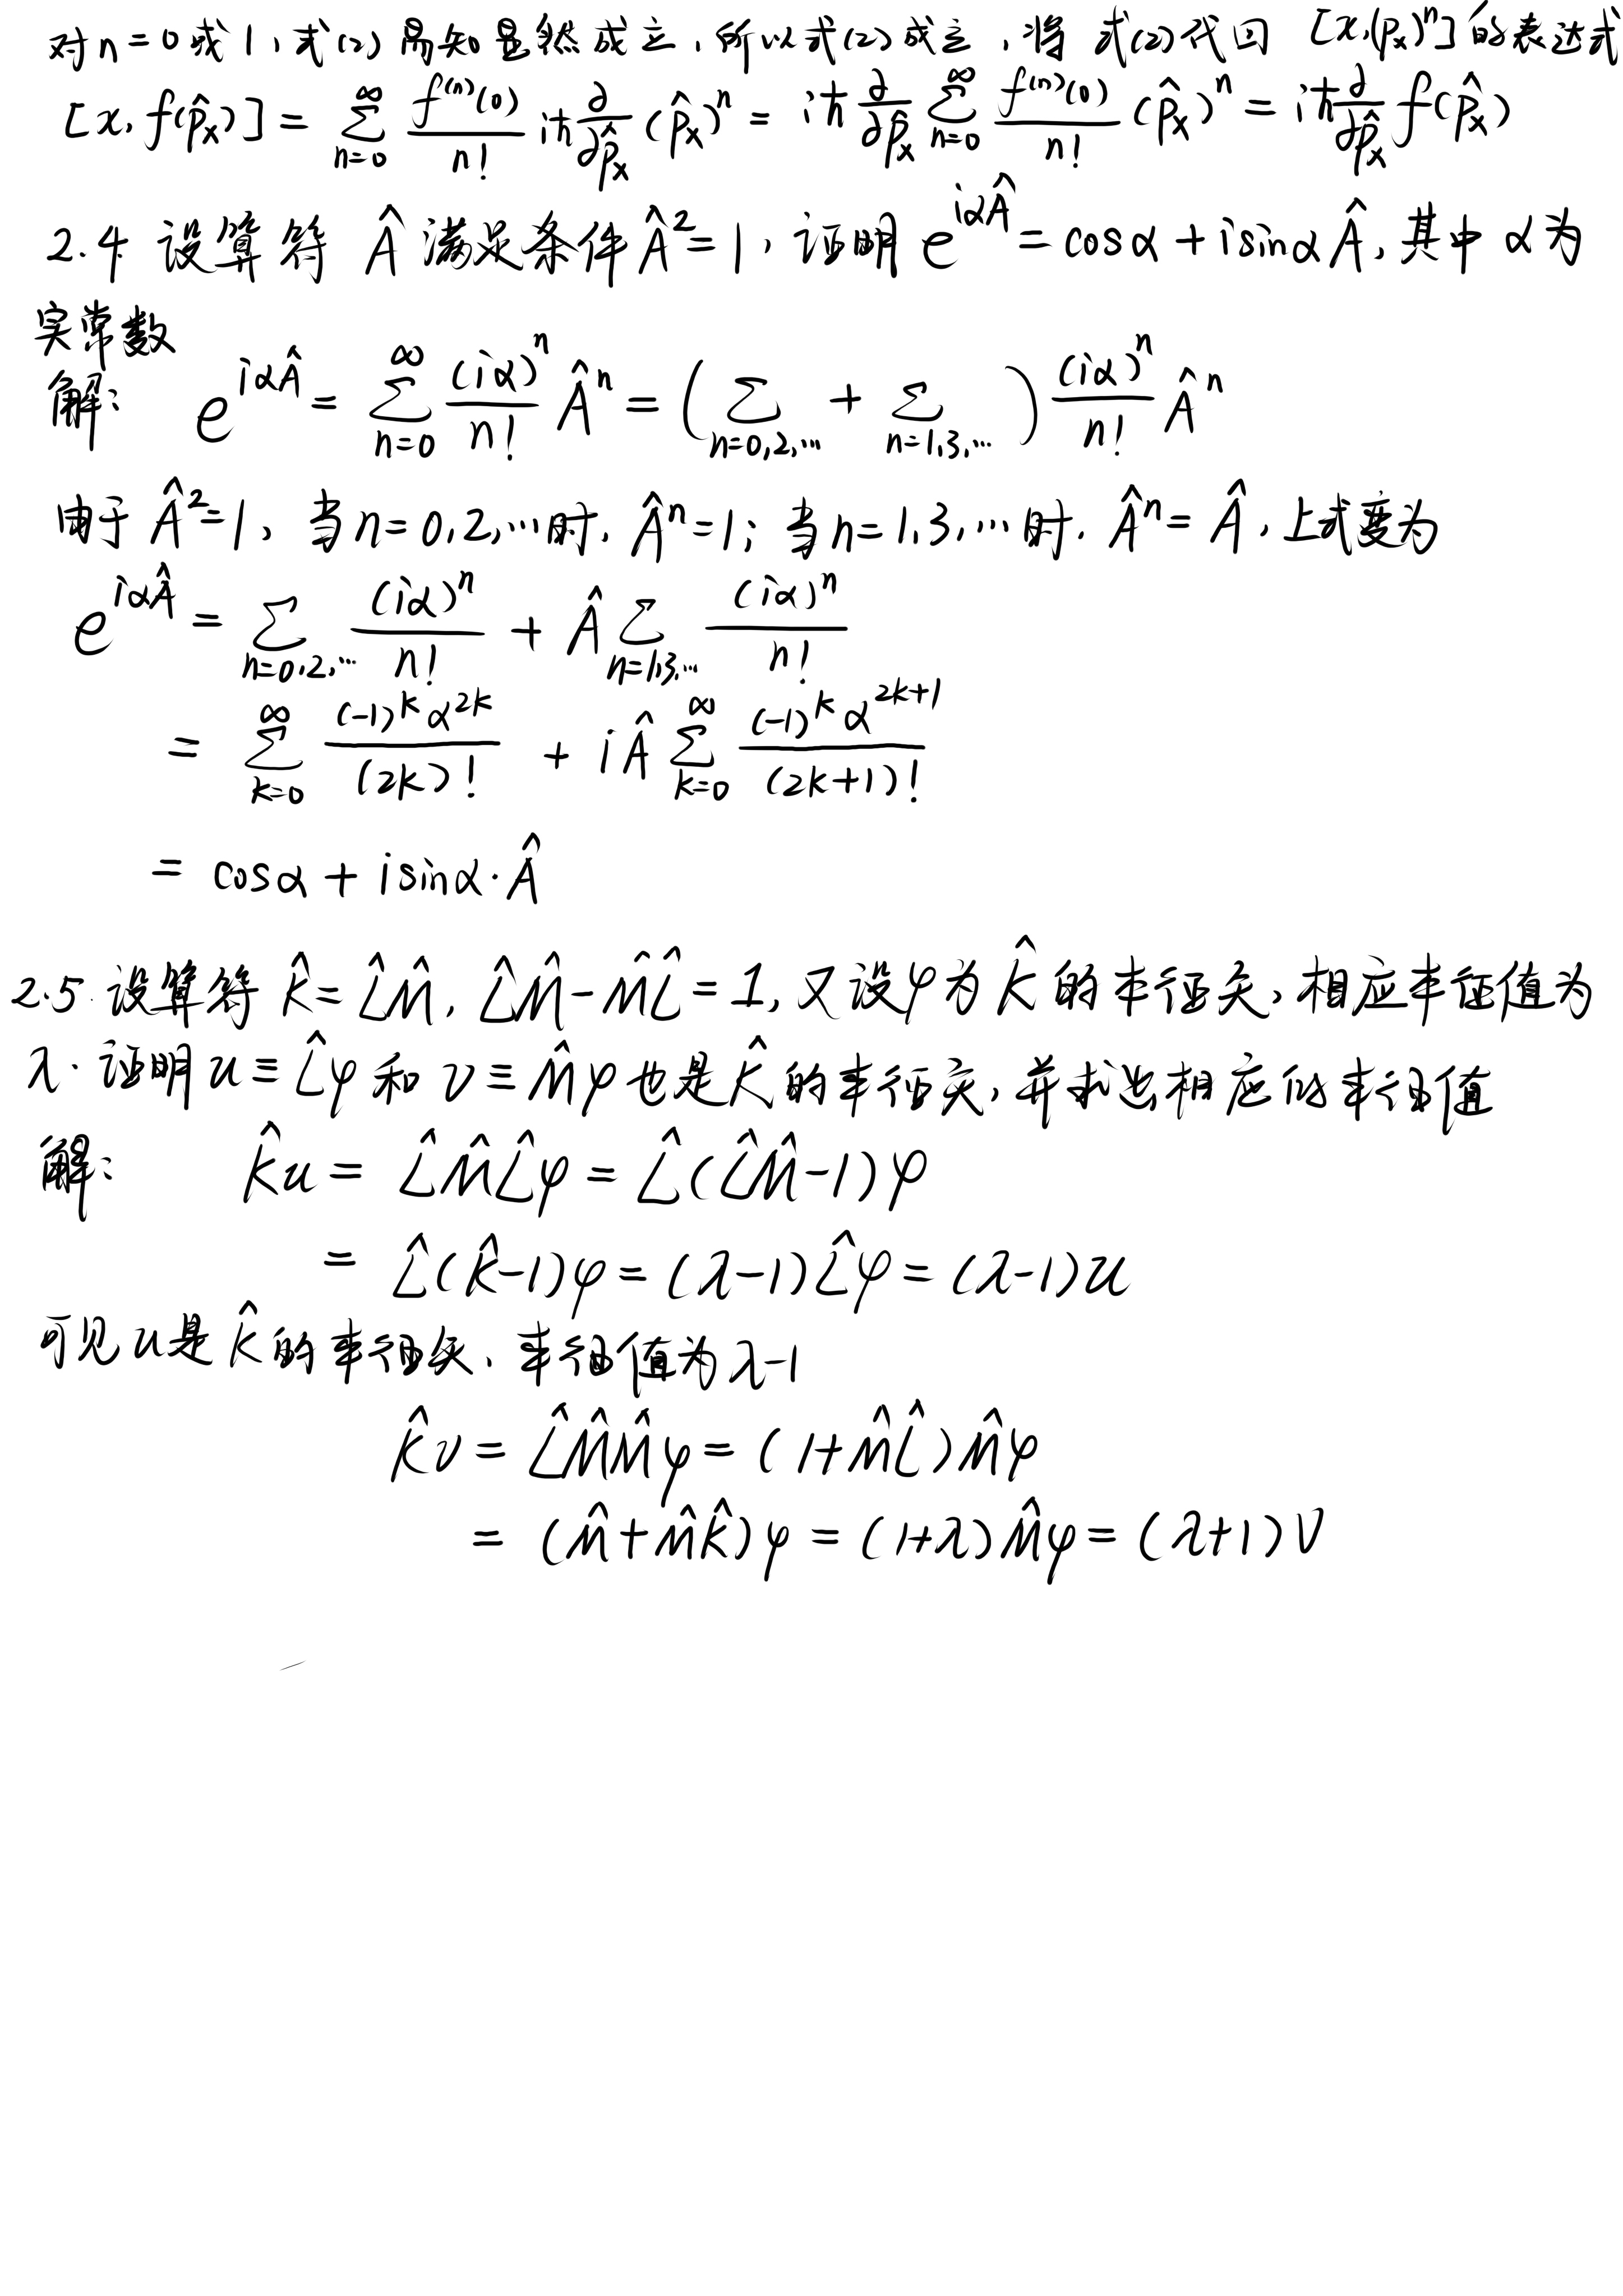 对n=0或1,式(2)易知显然成立,所以式(2)成立,将 式(2)代回 [x,(p̂ₓ)ⁿ]的表达式
[x, f(p̂ₓ)] = ∑_{n=0}^{∞} f⁽ⁿ⁾(0)/n! iħ ∂/∂p̂ₓ (p̂ₓ)ⁿ = iħ ∂/∂p̂ₓ ∑_{n=0}^{∞} f⁽ⁿ⁾(0)/n! (p̂ₓ)ⁿ = iħ ∂/∂p̂ₓ f(p̂ₓ)
2.4 设算符 Â 满足条件Â²=1, 证明 e^{iαÂ} = cosα + i sinα Â, 其中 α为
实常数
解: e^{iαÂ} = ∑_{n=0}^{∞} (iα)ⁿ/n! Âⁿ = (∑_{n=0,2,…} + ∑_{n=1,3,…}) (iα)ⁿ/n! Âⁿ
由于 Â²=1, 当n=0,2,…时, Âⁿ=1; 当n=1,3,…时, Âⁿ=Â, 上式变为
e^{iαÂ} = ∑_{n=0,2,…} (iα)ⁿ/n! + Â ∑_{n=1,3,…} (iα)ⁿ/n!
= ∑_{k=0}^{∞} (-1)^k α^{2k}/(2k)! + iÂ ∑_{k=0}^{∞} (-1)^k α^{2k+1}/(2k+1)!
= cosα + i sinα·Â
2.5 设算符 K̂=L̂M̂, L̂M̂-M̂L̂=1, 又设φ为K̂的本征矢, 相应本征值为
λ. 证明u≡L̂φ和 v≡M̂φ也是K̂的本征矢, 并求出相应的本征值
解: K̂u = L̂M̂L̂φ = L̂(L̂M̂-1)φ
= L̂(K̂-1)φ = (λ-1)L̂φ = (λ-1)u
可见u是K̂的本征矢, 本征值为λ-1
K̂v = L̂M̂M̂φ = (1+M̂L̂)M̂φ
= (M̂+M̂K̂)φ = (1+λ)M̂φ = (λ+1)v